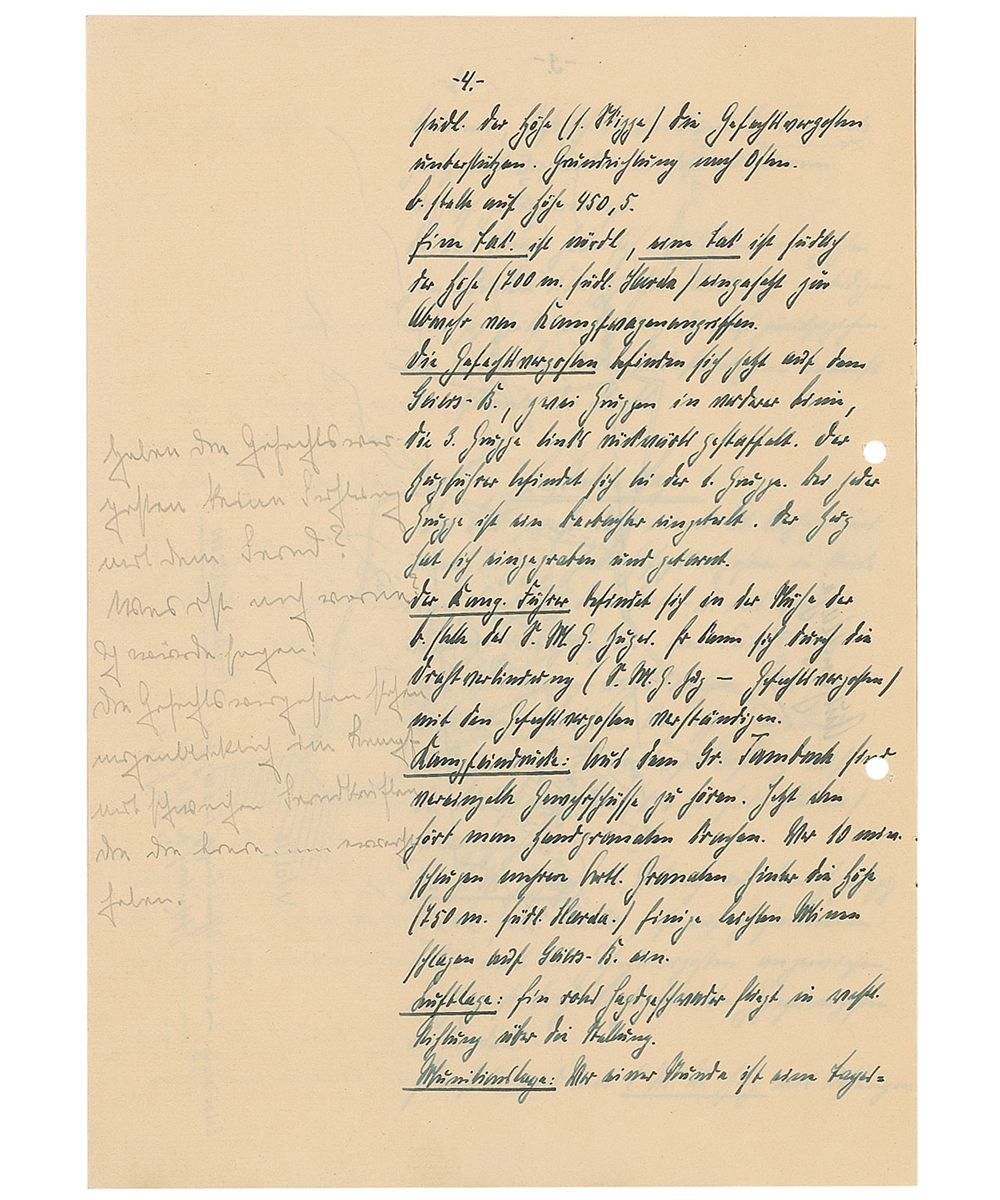 -4.-
südl. der Höhe (s. Skizze) die Gefechtsvorposten
unterstützen. Grundrichtung nach Osten.
B. stelle auf Höhe 450,5.
Eine Tak. ist nördl., eine Tak ist südlich
der Höhe (700 m. südl. Harda) eingesetzt zur
Abwehr von Kampfwagenangriffen.
Die Gefechtsvorposten befinden sich jetzt auf dem
Geiers-B., zwei Gruppen in vorderer Linie,
die 3. Gruppe links rückwärts gestaffelt. Der
Zugführer befindet sich bei der 1. Gruppe. Bei jeder
Gruppe ist ein Beobachter eingeteilt. Der Zug
hat sich eingegraben und getarnt.
Der Komp. Führer befindet sich in der Nähe der
B. stelle des S. M. G. Zuges. Er kann sich durch die
Drahtverbindung (S. M. G. Zug — Gefechtsvorposten)
mit den Gefechtsvorposten verständigen.
Kampfeindrücke: Aus dem Gr. Tambach sind
vereinzelte Gewehrschüsse zu hören. Jetzt eben
hört man Handgranaten krachen. Vor 10 min.
schlugen mehrere Artl. Granaten hinter die Höhe
(750 m. südl. Harda.) Einige leichten Minen
schlagen auf Geiers-B. ein.
Luftlage: Ein rotes Jagdgeschwader fliegt in westl.
Richtung über die Stellung.
Munitionslage: Vor einer Stunde ist eine Tages=
Haben die Gefechtsvor-
posten keine Fühlung
mit dem Feind?
Was ist noch vorne?
Ich würde sagen:
Die Gefechtsvorposten stehen
augenblicklich im Kampf
mit schwachen Feindkräften
die die
haben.